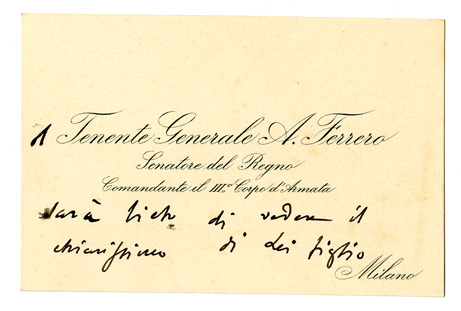 Tenente Generale A. Ferrero
Senatore del Regno
Comandante il III.º Corpo d'Armata
sarà lieto di vedere il
chiarissimo di Lei figlio
Milano